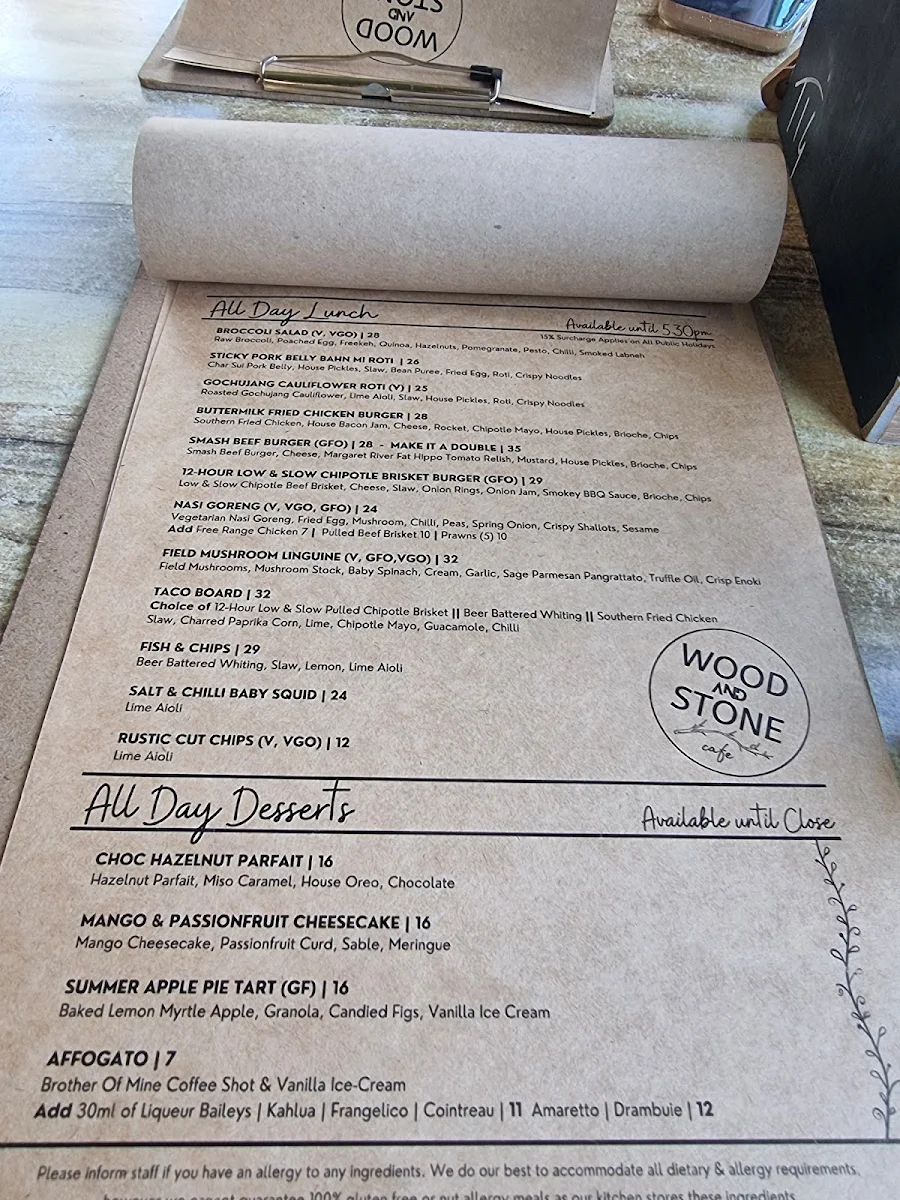 WOOD
AND
STONE
All Day Lunch
Available until 5.30pm
BROCCOLI SALAD (V, VGO) | 28
15% Surcharge Applies on All Public Holidays
Raw Broccoli, Poached Egg, Freekeh, Quinoa, Hazelnuts, Pomegranate, Pesto, Chilli, Smoked Labneh
STICKY PORK BELLY BAHN MI ROTI | 26
Char Sui Pork Belly, House Pickles, Slaw, Bean Puree, Fried Egg, Roti, Crispy Noodles
GOCHUJANG CAULIFLOWER ROTI (V) | 25
Roasted Gochujang Cauliflower, Lime Aioli, Slaw, House Pickles, Roti, Crispy Noodles
BUTTERMILK FRIED CHICKEN BURGER | 28
Southern Fried Chicken, House Bacon Jam, Cheese, Rocket, Chipotle Mayo, House Pickles, Brioche, Chips
SMASH BEEF BURGER (GFO) | 28 - MAKE IT A DOUBLE | 35
Smash Beef Burger, Cheese, Margaret River Fat Hippo Tomato Relish, Mustard, House Pickles, Brioche, Chips
12-HOUR LOW & SLOW CHIPOTLE BRISKET BURGER (GFO) | 29
Low & Slow Chipotle Beef Brisket, Cheese, Slaw, Onion Rings, Onion Jam, Smokey BBQ Sauce, Brioche, Chips
NASI GORENG (V, VGO, GFO) | 24
Vegetarian Nasi Goreng, Fried Egg, Mushroom, Chilli, Peas, Spring Onion, Crispy Shallots, Sesame
Add Free Range Chicken 7 | Pulled Beef Brisket 10 | Prawns (5) 10
FIELD MUSHROOM LINGUINE (V, GFO,VGO) | 32
Field Mushrooms, Mushroom Stock, Baby Spinach, Cream, Garlic, Sage Parmesan Pangrattato, Truffle Oil, Crisp Enoki
TACO BOARD | 32
Choice of 12-Hour Low & Slow Pulled Chipotle Brisket || Beer Battered Whiting || Southern Fried Chicken
Slaw, Charred Paprika Corn, Lime, Chipotle Mayo, Guacamole, Chilli
FISH & CHIPS | 29
Beer Battered Whiting, Slaw, Lemon, Lime Aioli
SALT & CHILLI BABY SQUID | 24
Lime Aioli
RUSTIC CUT CHIPS (V, VGO) | 12
Lime Aioli
WOOD
AND
STONE
cafe
All Day Desserts
Available until Close
CHOC HAZELNUT PARFAIT | 16
Hazelnut Parfait, Miso Caramel, House Oreo, Chocolate
MANGO & PASSIONFRUIT CHEESECAKE | 16
Mango Cheesecake, Passionfruit Curd, Sable, Meringue
SUMMER APPLE PIE TART (GF) | 16
Baked Lemon Myrtle Apple, Granola, Candied Figs, Vanilla Ice Cream
AFFOGATO | 7
Brother Of Mine Coffee Shot & Vanilla Ice-Cream
Add 30ml of Liqueur Baileys | Kahlua | Frangelico | Cointreau | 11 Amaretto | Drambuie | 12
Please inform staff if you have an allergy to any ingredients. We do our best to accommodate all dietary & allergy requirements,
however we cannot guarantee 100% gluten free or nut allergy meals as our kitchen stores these ingredients.